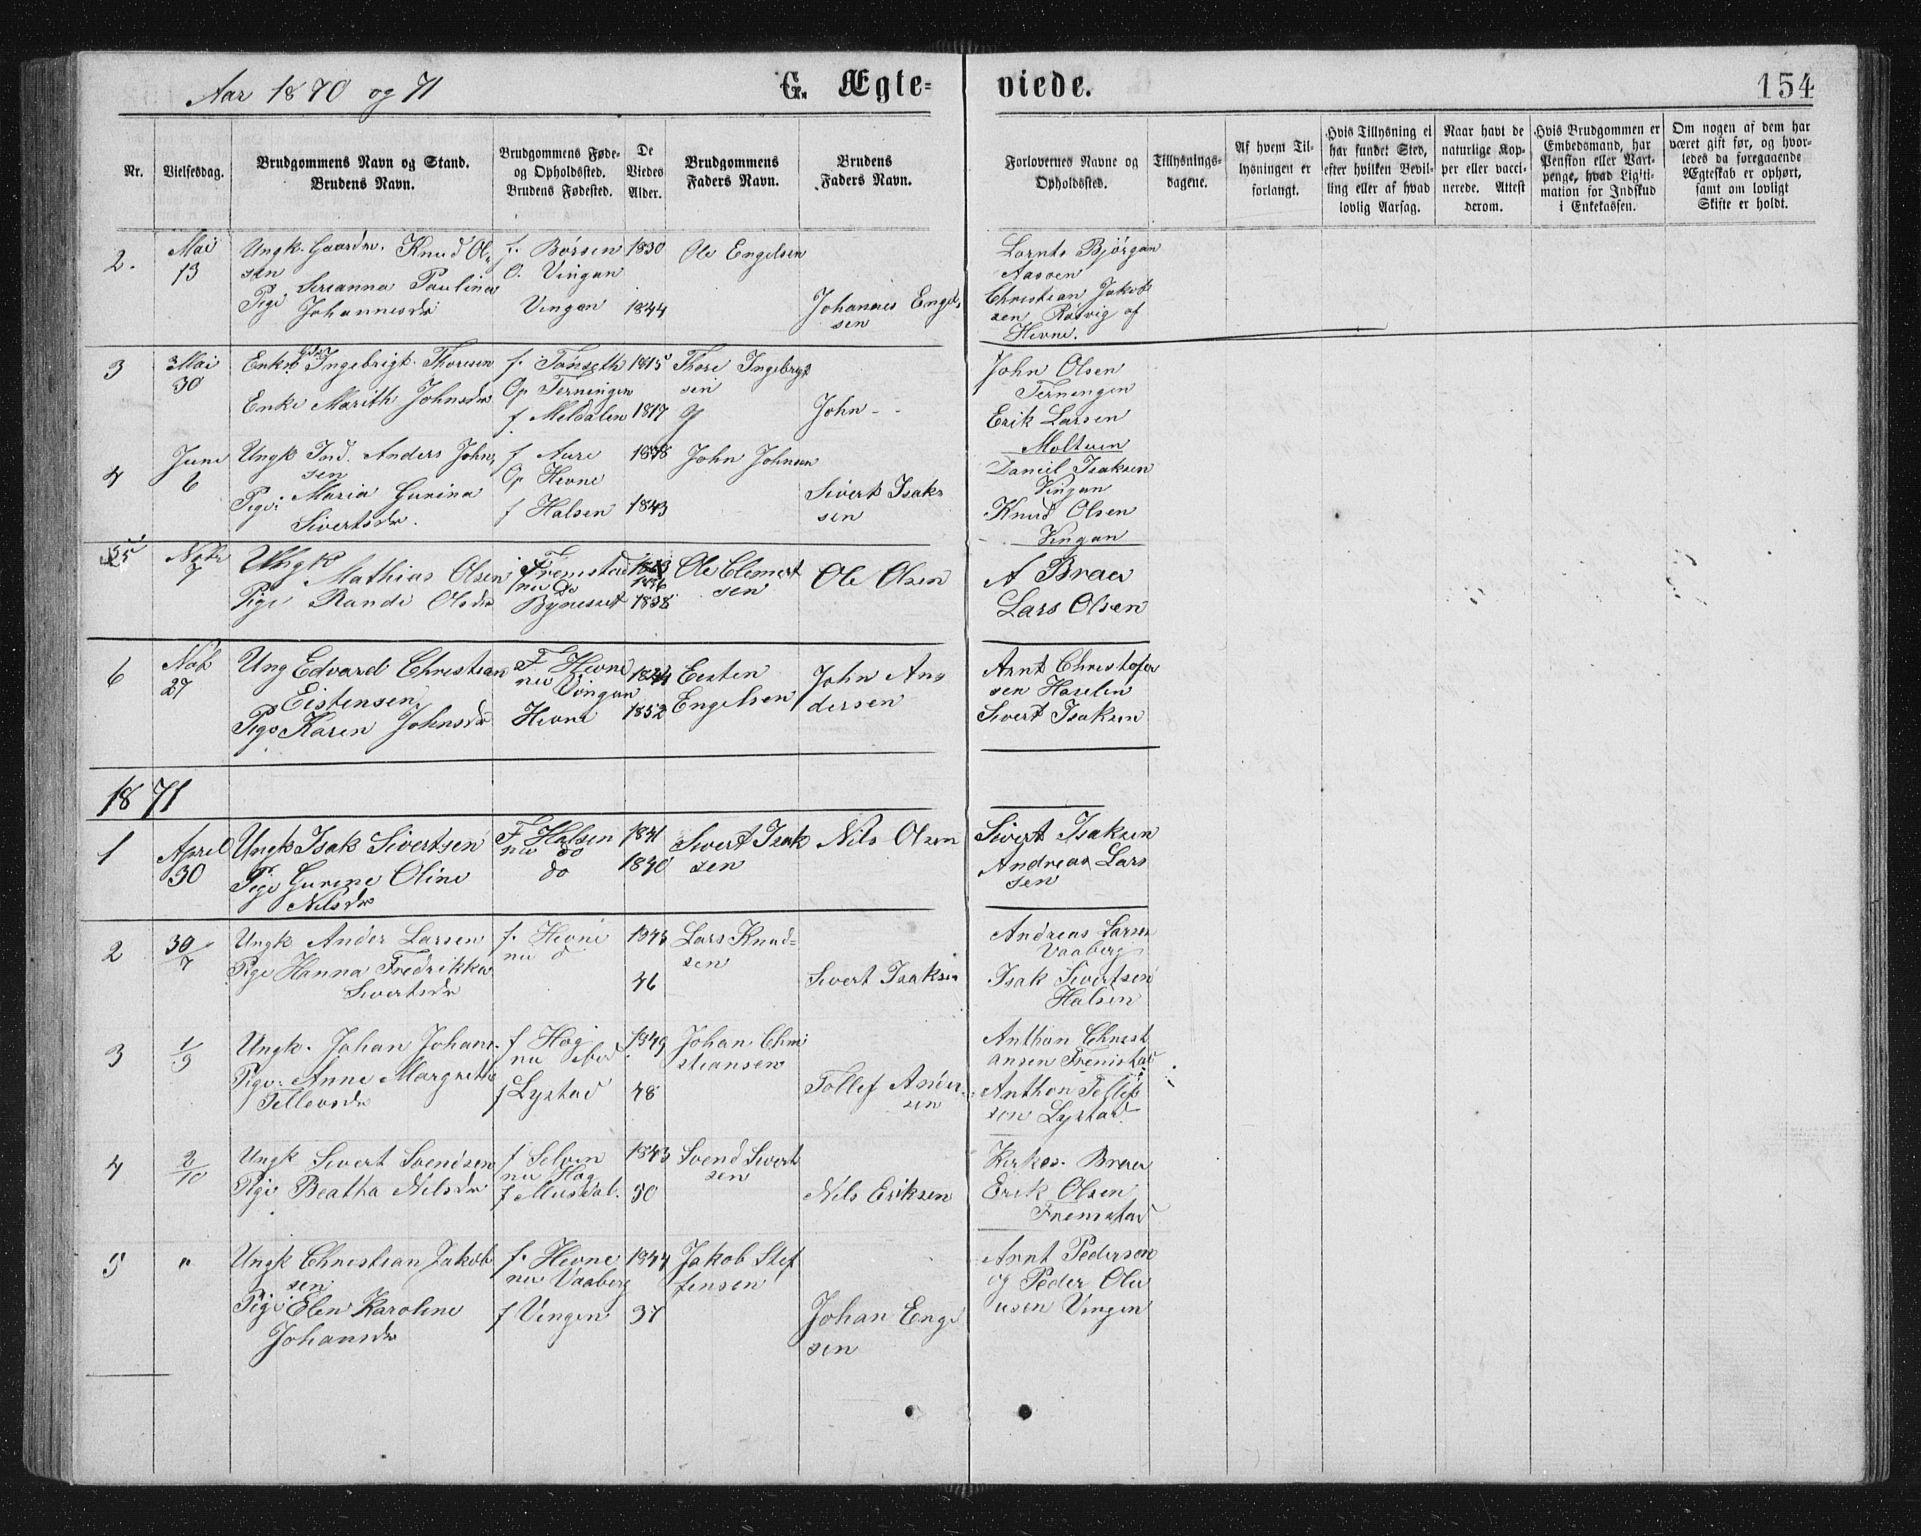 Aar 1870 og 71
G. Ægte=
viede.
154
Nr.
Vielsesdag.
Brudgommens Navn og Stand.
Brudens Navn.
Brudgommens Føde-
og Opholdssted.
Brudens Fødested.
De
Viedes
Alder.
Brudgommens
Faders Navn.
Brudens
Faders Navn.
Forlovernes Navne og
Opholdssted.
Tillysnings-
dagene.
Af hvem Til-
lysningen er
forlangt.
Hvis Tillysning ei
har fundet Sted,
efter hvilken Bevil-
ling eller af hvad
lovlig Aarsag.
Naar havt de
naturlige Kop-
per eller vacci-
nerede. Attest
derom.
Hvis Brudgommen er
Embedsmand, har
Pension eller Vart-
penge, hvad Ligiti-
mation for Indskud
i Enkekassen.
Om nogen af dem har
været gift før, og hvor-
ledes da foregaaende
Ægteskab er ophørt,
samt om lovligt
Skifte er holdt.
2.
Mai
13
Ungk. Gaardm. Knud Ol-
sen
Pige Sereanna Paulina
Johannesdr
f. Börsen
O. Vingan
Vingan
1830
1844
Ole Engelsen
Johannes Engel-
sen
Lornts Bjørgan
Aasoen
Christian Jakob
sen Røsvig af
Hevne.
3
Mai
30
Enkem Ingebrigt Thoresen
Enke Marith Johnsdr
f. Tønseth
Op Terningen
f Meldalen
1815
1817
Thore Ingebrygt
sen
John - -
John Olsen
Terningen
Erik Larsen
Moltuen
4
Juni
6
Ungk Ind. Anders John
sen
Pige Maria Gurina
Sivertsdr.
f Aure
Op Hevne
f Halsen
1848
1843
John Johnsen
Sivert Isak-
sen
Daniel Isaksen
Vingan
Knud Olsen
Vingan
5
Nobr
7
Ungk
Mathias Olsen
Pige Randi Olsdr
Fremstad
nu do
Bynesset
1836
1838
Ole Clemet
sen
Ole Olsen
A Braa
Lars Olsen
6
Nob
27
Ung Edvard Christian
Eistensen
Pige Karen Johnsdr
F Hevne
nu Vingan
Hevne
1844
1852
Eesten
Engelsen
John An-
dersen
Arnt Christofer
sen Haselin
Sivert Isaksen
1871
1
April
30
Ungk Isak Sivertsen
Pige Gurine Oline
Nilsdr
F Halsen
nu do
do
1841
1840
Sivert Isak
sen
Nils Olsen
Sivert Isaksen
Andreas Lars
sen
2
30/7
Ungk Ander Larsen
Pige Hanna Fredrikka
Sivertsdr
f. Hevne
nu d
1843
46
Lars Knud-
sen
Sivert Isaksen
Andreas Larsen
Vaaberg
Isak Sivertsen
Halsen
3
1/9
Ungk. Johan Johans.
Pige. Anne Margrethe
Tellevsdr
f Hog
nu ibid
f Lystad
1849
48
Johan Chri
stiansen
Tollef Ander-
sen
Anthon Christ
ansen Fremstad
Anthon Tollef
sen Lystad
4
2/10
Ungk Sivert Svendsen
Pige Beatha Nilsdr
f Selven
nu Hog
f Musdal.
1843
50
Svend Sivert
sen
Nils Eriksen
Kirkes. Braa
Erik Olsen
Fremstad
5
"
Ungk Christian Jakob
sen
Pige Elen Karoline
Johansdr
f. Hevne
nu Vaaberg
f Vingen
1844
37
Jakob Stef
fensen
Johan Enge
sen
Arnt Pedersen
og Peder Ole
usen Vingen